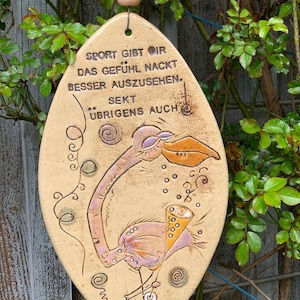 SPORT GIBT DIR
DAS GEFÜHL NACKT
BESSER AUSZUSEHEN.
SEKT
ÜBRIGENS AUCH